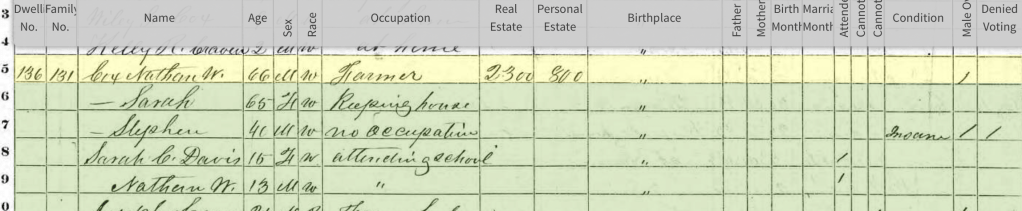 Dwell No. Family No. Name Age Sex Race Occupation Real Estate Personal Estate Birthplace Father Mother Birth Month Marria Month Attende Cannot Cannot Condition Male O Denied Voting
3
4 Wiley R. Craven 2 M W at home "
5 136 131 Cox Nathan W. 66 M W Farmer 2300 800 " 1
6 — Sarah 65 F W Keeping house "
7 — Stephen 41 M W no occupation " Insane 1 1
8 Sarah C. Davis 15 F W attending school " 1
9 Nathan W. 13 M W " " 1
0